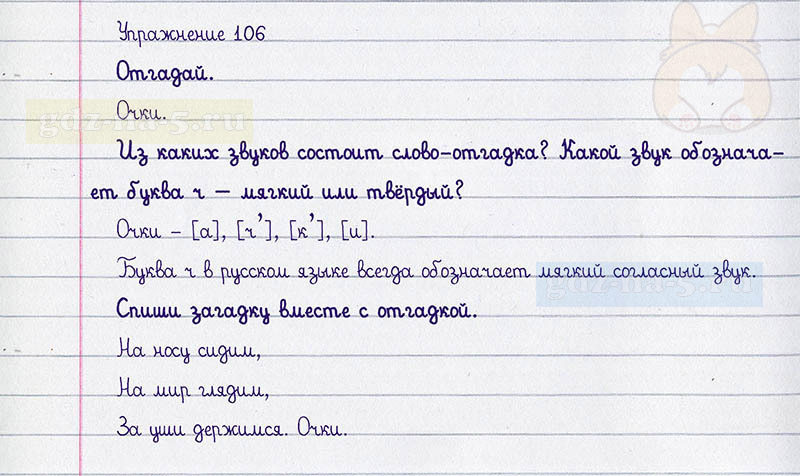 Упражнение 106
Отгадай.
Очки.
gdz-na-5.ru
Из каких звуков состоит слово-отгадка? Какой звук обознача-
ет буква ч – мягкий или твёрдый?
Очки – [а], [ч’], [к’], [и].
Буква ч в русском языке всегда обозначает мягкий согласный звук.
gdz-na-5.ru
Спиши загадку вместе с отгадкой.
На носу сидим,
На мир глядим,
За уши держимся. Очки.